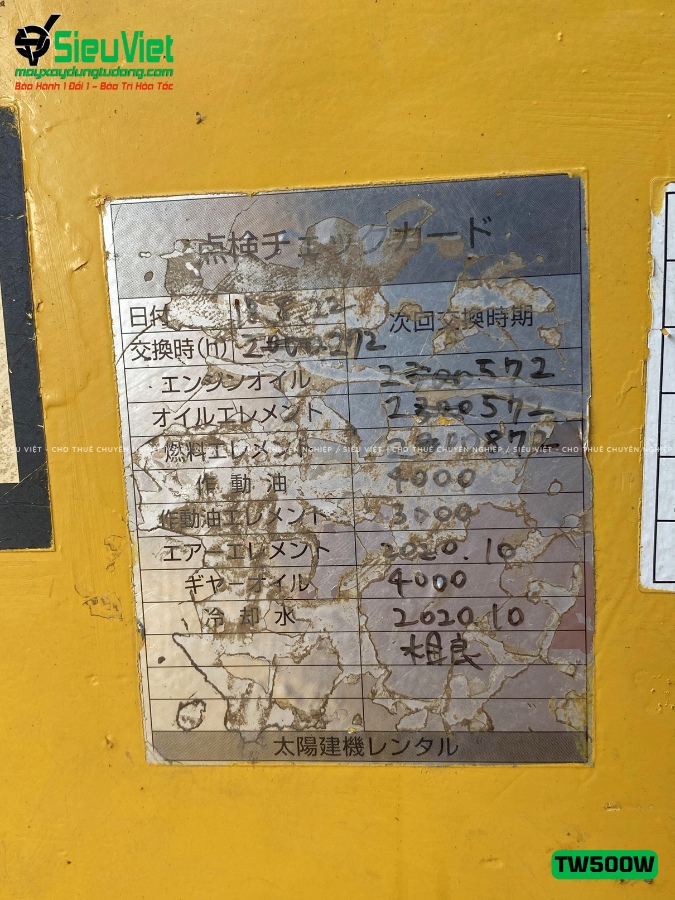 SieuViet
mayxaydungtudong.com
Bảo Hành 1 Đổi 1 - Bảo Trì Hỏa Tốc
点検チェックカード
日付 18.8.22 次回交換時期
交換時(h)
エンジンオイル
オイルエレメント
燃料エレメント
SIEU VIET - CHO THUÊ CHUYÊN NGHIỆP / SIEU VIET - CHO THUÊ CHUYÊN NGHIỆP / SIEU VIET - CHO THUÊ CHUYÊN NGHIỆP
作動油 4000
作動油エレメント 3000
エアーエレメント 2020.10
ギヤーオイル 4000
冷却水 2020.10
相良
太陽建機レンタル
TW500W